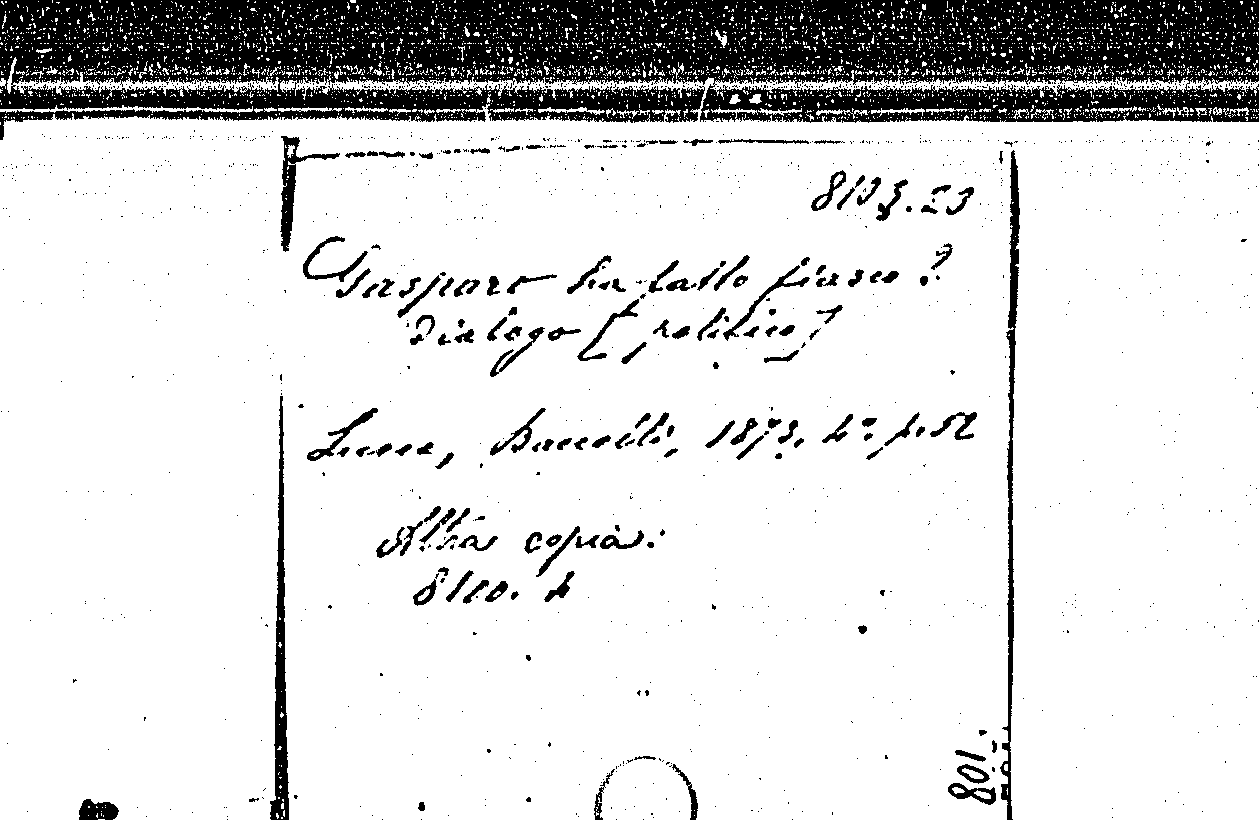 Gasparo ha fatto fiasco?
Dialogo [politico]
Lucca, Baccelli, 1873. 4º. p. 52
Altra copia:
8100. 4
801.